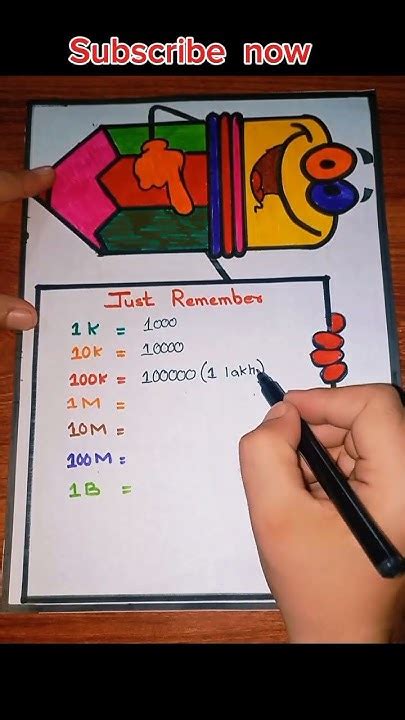 Subscribe now
Just Remember
1K = 1000
10K = 10000
100K = 100000 (1 lakh)
1M =
10M =
100M =
1B =